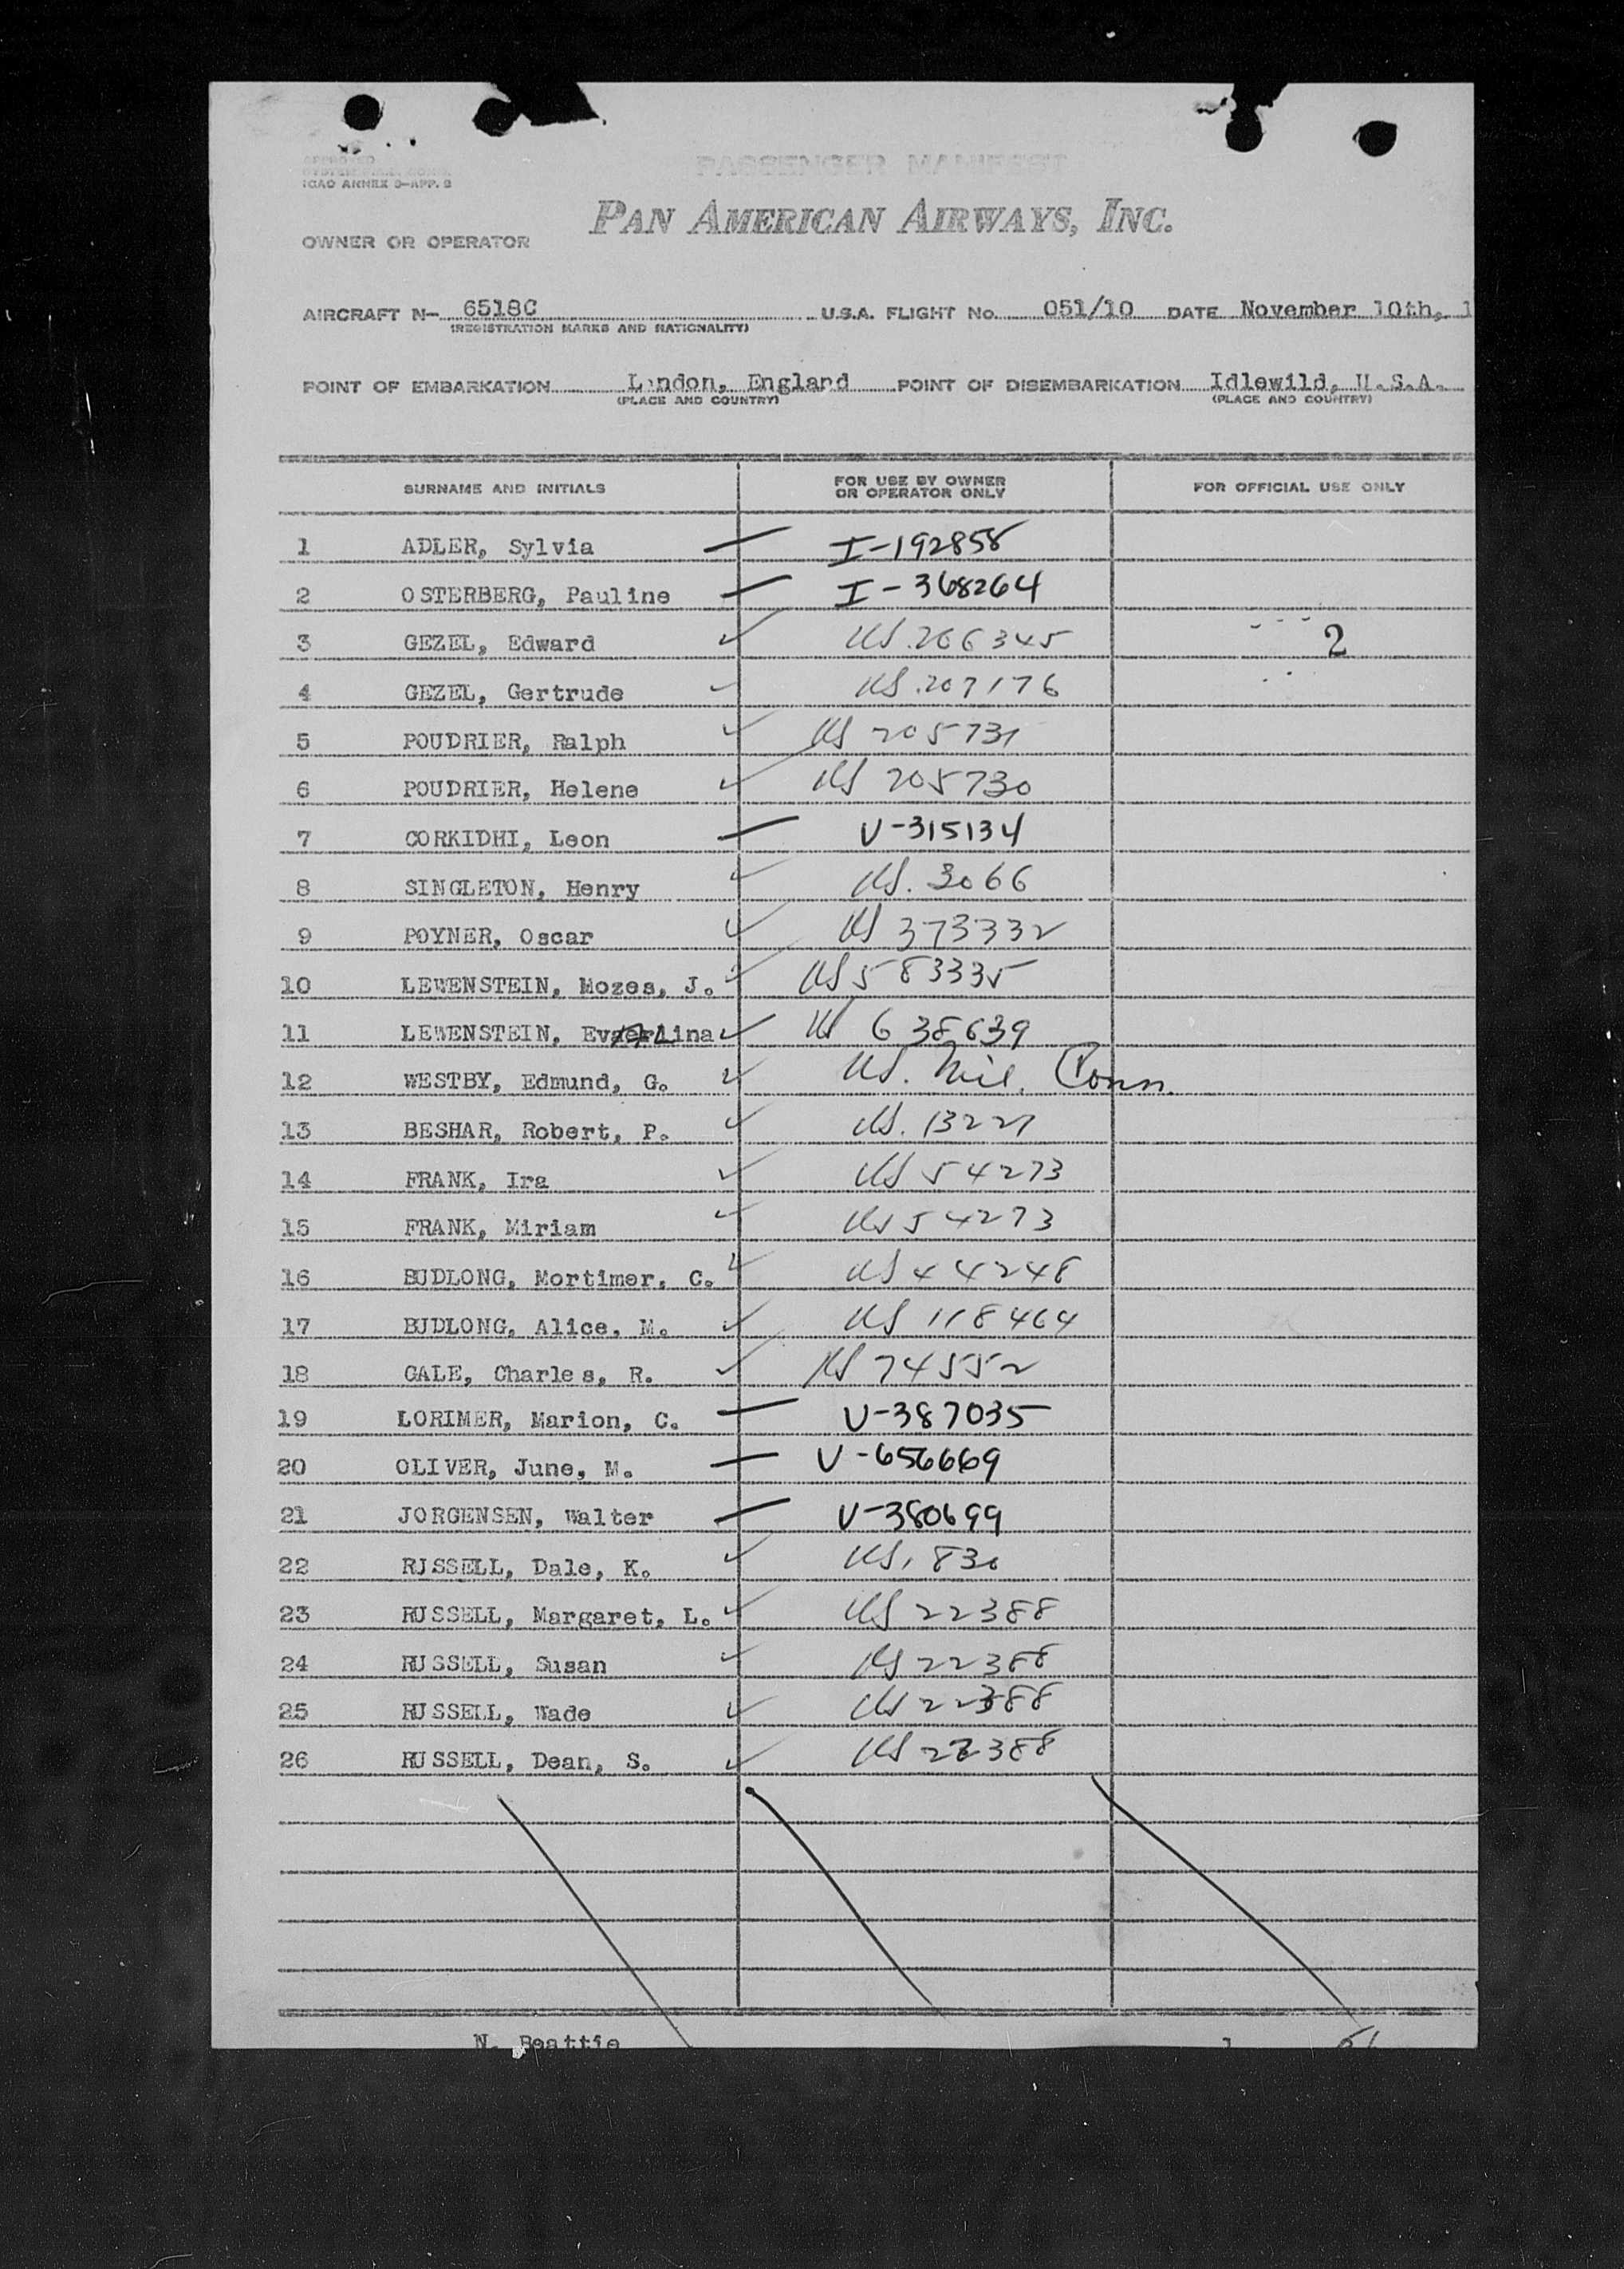 APPROVED
ICAO ANNEX 9-APP. 3
PASSENGER MANIFEST
PAN AMERICAN AIRWAYS, INC.
OWNER OR OPERATOR
AIRCRAFT N- 6518C U.S.A. FLIGHT No. 051/10 DATE November 10th, 1
(REGISTRATION MARKS AND NATIONALITY)
POINT OF EMBARKATION London, England POINT OF DISEMBARKATION Idlewild, U.S.A.
(PLACE AND COUNTRY) (PLACE AND COUNTRY)
SURNAME AND INITIALS FOR USE BY OWNER OR OPERATOR ONLY FOR OFFICIAL USE ONLY
1 ADLER, Sylvia — I-192858
2 OSTERBERG, Pauline — I-368264
3 GEZEL, Edward ✓ US.206345 2
4 GEZEL, Gertrude ✓ US.207176
5 POUDRIER, Ralph ✓ US 205731
6 POUDRIER, Helene ✓ US 205730
7 CORKIDHI, Leon — V-315134
8 SINGLETON, Henry ✓ US. 3066
9 POYNER, Oscar ✓ US 373332
10 LEWENSTEIN, Mozes, J. ✓ US 583335
11 LEWENSTEIN, Evaerlina ✓ US 638639
12 WESTBY, Edmund, G. ✓ US. Mil. Conn.
13 BESHAR, Robert, P. ✓ US. 13221
14 FRANK, Ira ✓ US 54273
15 FRANK, Miriam ✓ US 54273
16 BUDLONG, Mortimer, C. ✓ US 44248
17 BUDLONG, Alice, M. ✓ US 118464
18 GALE, Charles, R. ✓ US 74552
19 LORIMER, Marion, C. — V-387035
20 OLIVER, June, M. — V-656669
21 JORGENSEN, Walter — V-380699
22 RUSSELL, Dale, K. ✓ US. 830
23 RUSSELL, Margaret, L. ✓ US 22388
24 RUSSELL, Susan ✓ US 22388
25 RUSSELL, Wade ✓ US 22388
26 RUSSELL, Dean, S. ✓ US 22388
N. Beattie 1